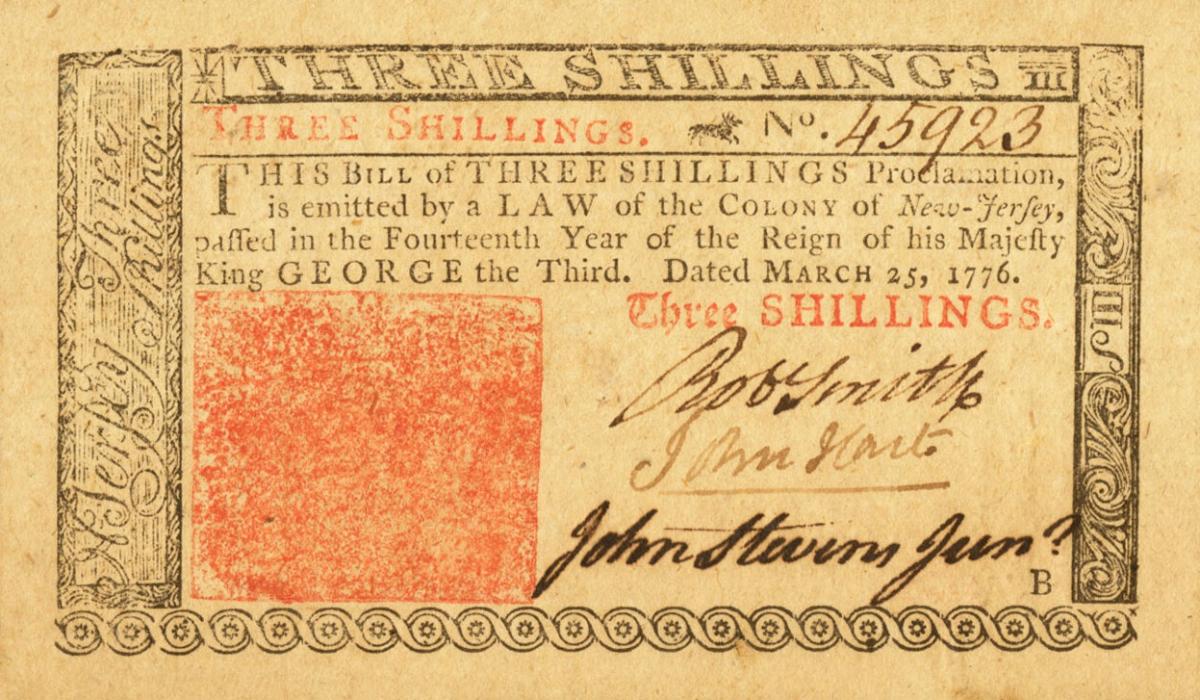 THREE SHILLINGS III
THREE SHILLINGS. No. 45923
THIS BILL of THREE SHILLINGS Proclamation,
is emitted by a LAW of the COLONY of New-Jerſey,
paſſed in the Fourteenth Year of the Reign of his Majeſty
King GEORGE the Third. Dated MARCH 25, 1776.
Three SHILLINGS.
Robt Smith
John Hart
John Stevens Junr
B
Three
Shillings
N Jerſey
III S